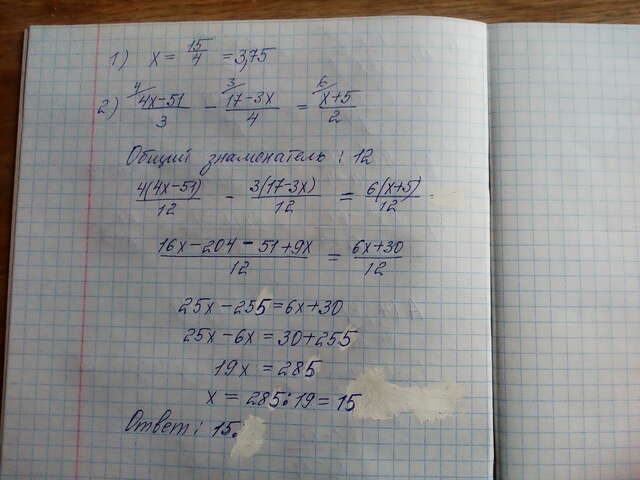 1) x = 15/4 = 3,75
2) 4/ 4x-51/3 - 3/ 17-3x/4 = 6/ x+5/2
Общий знаменатель: 12
4(4x-51)/12 - 3(17-3x)/12 = 6(x+5)/12
16x-204-51+9x/12 = 6x+30/12
25x-255=6x+30
25x-6x=30+255
19x=285
x=285:19=15
Ответ: 15.